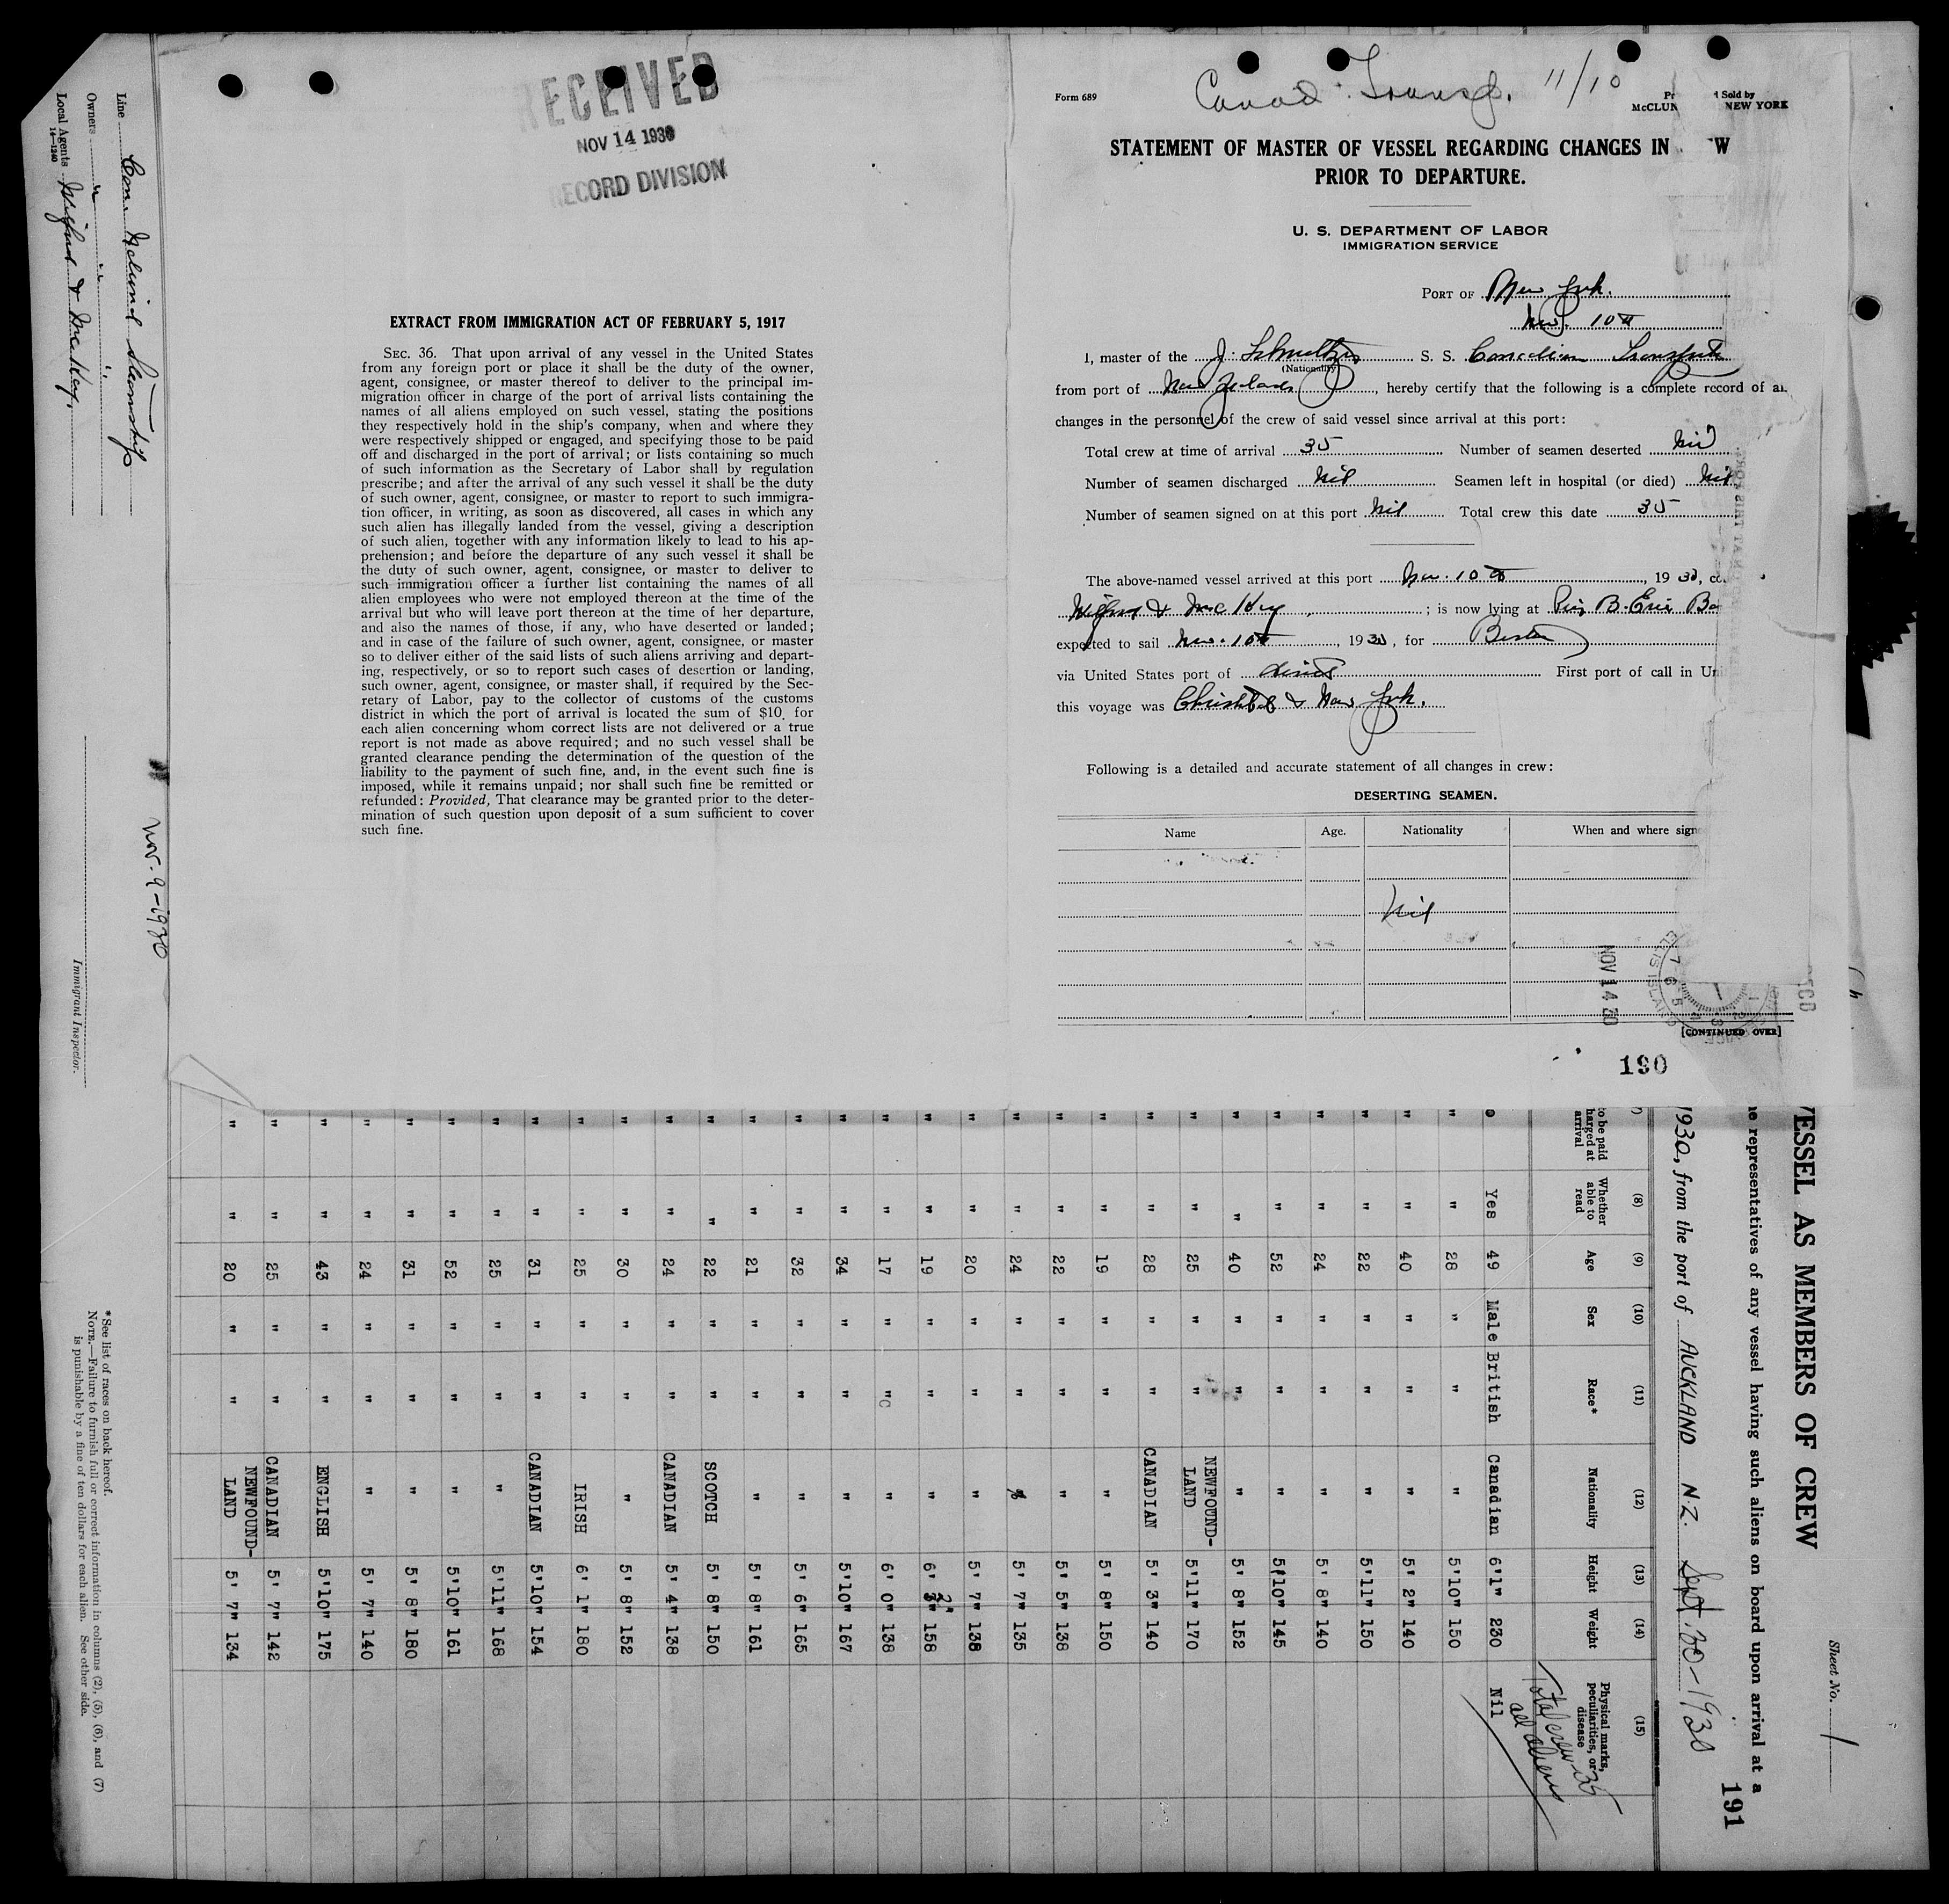 RECEIVED
NOV 14 1930
RECORD DIVISION
EXTRACT FROM IMMIGRATION ACT OF FEBRUARY 5, 1917
SEC. 36. That upon arrival of any vessel in the United States
from any foreign port or place it shall be the duty of the owner,
agent, consignee, or master thereof to deliver to the principal im-
migration officer in charge of the port of arrival lists containing the
names of all aliens employed on such vessel, stating the positions
they respectively hold in the ship's company, when and where they
were respectively shipped or engaged, and specifying those to be paid
off and discharged in the port of arrival; or lists containing so much
of such information as the Secretary of Labor shall by regulation
prescribe; and after the arrival of any such vessel it shall be the duty
of such owner, agent, consignee, or master to report to such immigra-
tion officer, in writing, as soon as discovered, all cases in which any
such alien has illegally landed from the vessel, giving a description
of such alien, together with any information likely to lead to his ap-
prehension; and before the departure of any such vessel it shall be
the duty of such owner, agent, consignee, or master to deliver to
such immigration officer a further list containing the names of all
alien employees who were not employed thereon at the time of the
arrival but who will leave port thereon at the time of her departure,
and also the names of those, if any, who have deserted or landed;
and in case of the failure of such owner, agent, consignee, or master
so to deliver either of the said lists of such aliens arriving and depart-
ing, respectively, or so to report such cases of desertion or landing,
such owner, agent, consignee, or master shall, if required by the Sec-
retary of Labor, pay to the collector of customs of the customs
district in which the port of arrival is located the sum of $10 for
each alien concerning whom correct lists are not delivered or a true
report is not made as above required; and no such vessel shall be
granted clearance pending the determination of the question of the
liability to the payment of such fine, and, in the event such fine is
imposed, while it remains unpaid; nor shall such fine be remitted or
refunded: Provided, That clearance may be granted prior to the deter-
mination of such question upon deposit of a sum sufficient to cover
such fine.
Form 689
11/10
Sold by
McCLUN NEW YORK
STATEMENT OF MASTER OF VESSEL REGARDING CHANGES IN W
PRIOR TO DEPARTURE.
U. S. DEPARTMENT OF LABOR
IMMIGRATION SERVICE
PORT OF New York.
Nov. 10th
I, master of the J. S. S. Canadian
(Nationality)
from port of New Zealand, hereby certify that the following is a complete record of
changes in the personnel of the crew of said vessel since arrival at this port:
Total crew at time of arrival 35 Number of seamen deserted Nil
Number of seamen discharged Nil Seamen left in hospital (or died) Nil
Number of seamen signed on at this port Nil Total crew this date 35
The above-named vessel arrived at this port Nov. 10th, 1930,
& McKay; is now lying at Pier B. Erie
expected to sail Nov. 10th, 1930, for Boston
via United States port of First port of call in
this voyage was & New York.
Following is a detailed and accurate statement of all changes in crew:
DESERTING SEAMEN.
Name Age. Nationality When and where
Nil
NOV 14 30
[CONTINUED OVER]
190
Line
Owners "
Local Agents & McKay.
14—1240
Nov-9-1930
Immigrant Inspector.
*See list of races on back hereof.
NOTE.—Failure to furnish full or correct information in columns (2), (5), (6), and (7)
is punishable by a fine of ten dollars for each alien. See other side.
Sheet No. 1
191
VESSEL AS MEMBERS OF CREW
representatives of any vessel having such aliens on board upon arrival at a
1930, from the port of AUCKLAND N.Z. Sept. 30-1930
(8) (9) (10) (11) (12) (13) (14) (15)
to be paid
arrival
Whether able to read Age Sex Race* Nationality Height Weight Physical marks, peculiarities, or disease
Total crew 35
all aliens
Yes 49 Male British Canadian 6'1" 230 Nil
" " 28 " " " 5'10" 150
" " 40 " " " 5' 2" 140
" " 22 " " " 5'11" 150
" " 24 " " " 5' 8" 140
" " 52 " " " 5'10" 145
" " 40 " " " 5' 8" 152
" " 25 " " NEWFOUND-LAND 5'11" 170
" " 28 " " CANADIAN 5' 3" 140
" " 19 " " " 5' 8" 150
" " 22 " " " 5' 5" 138
" " 24 " " " 5' 7" 135
" " 20 " " " 5' 7" 138
" " 19 " " " 6' 2" 158
" " 17 " " " 6' 0" 138
" " 34 " " " 5'10" 167
" " 32 " " " 5' 6" 165
" " 21 " " " 5' 8" 161
" " 22 " " SCOTCH 5' 8" 150
" " 24 " " CANADIAN 5' 4" 138
" " 30 " " " 5' 8" 152
" " 25 " " IRISH 6' 1" 180
" " 31 " " CANADIAN 5'10" 154
" " 25 " " " 5'11" 168
" " 52 " " " 5'10" 161
" " 31 " " " 5' 8" 180
" " 24 " " " 5' 7" 140
" " 43 " " ENGLISH 5'10" 175
" " 25 " " CANADIAN 5' 7" 142
" " 20 " " NEWFOUND-LAND 5' 7" 134